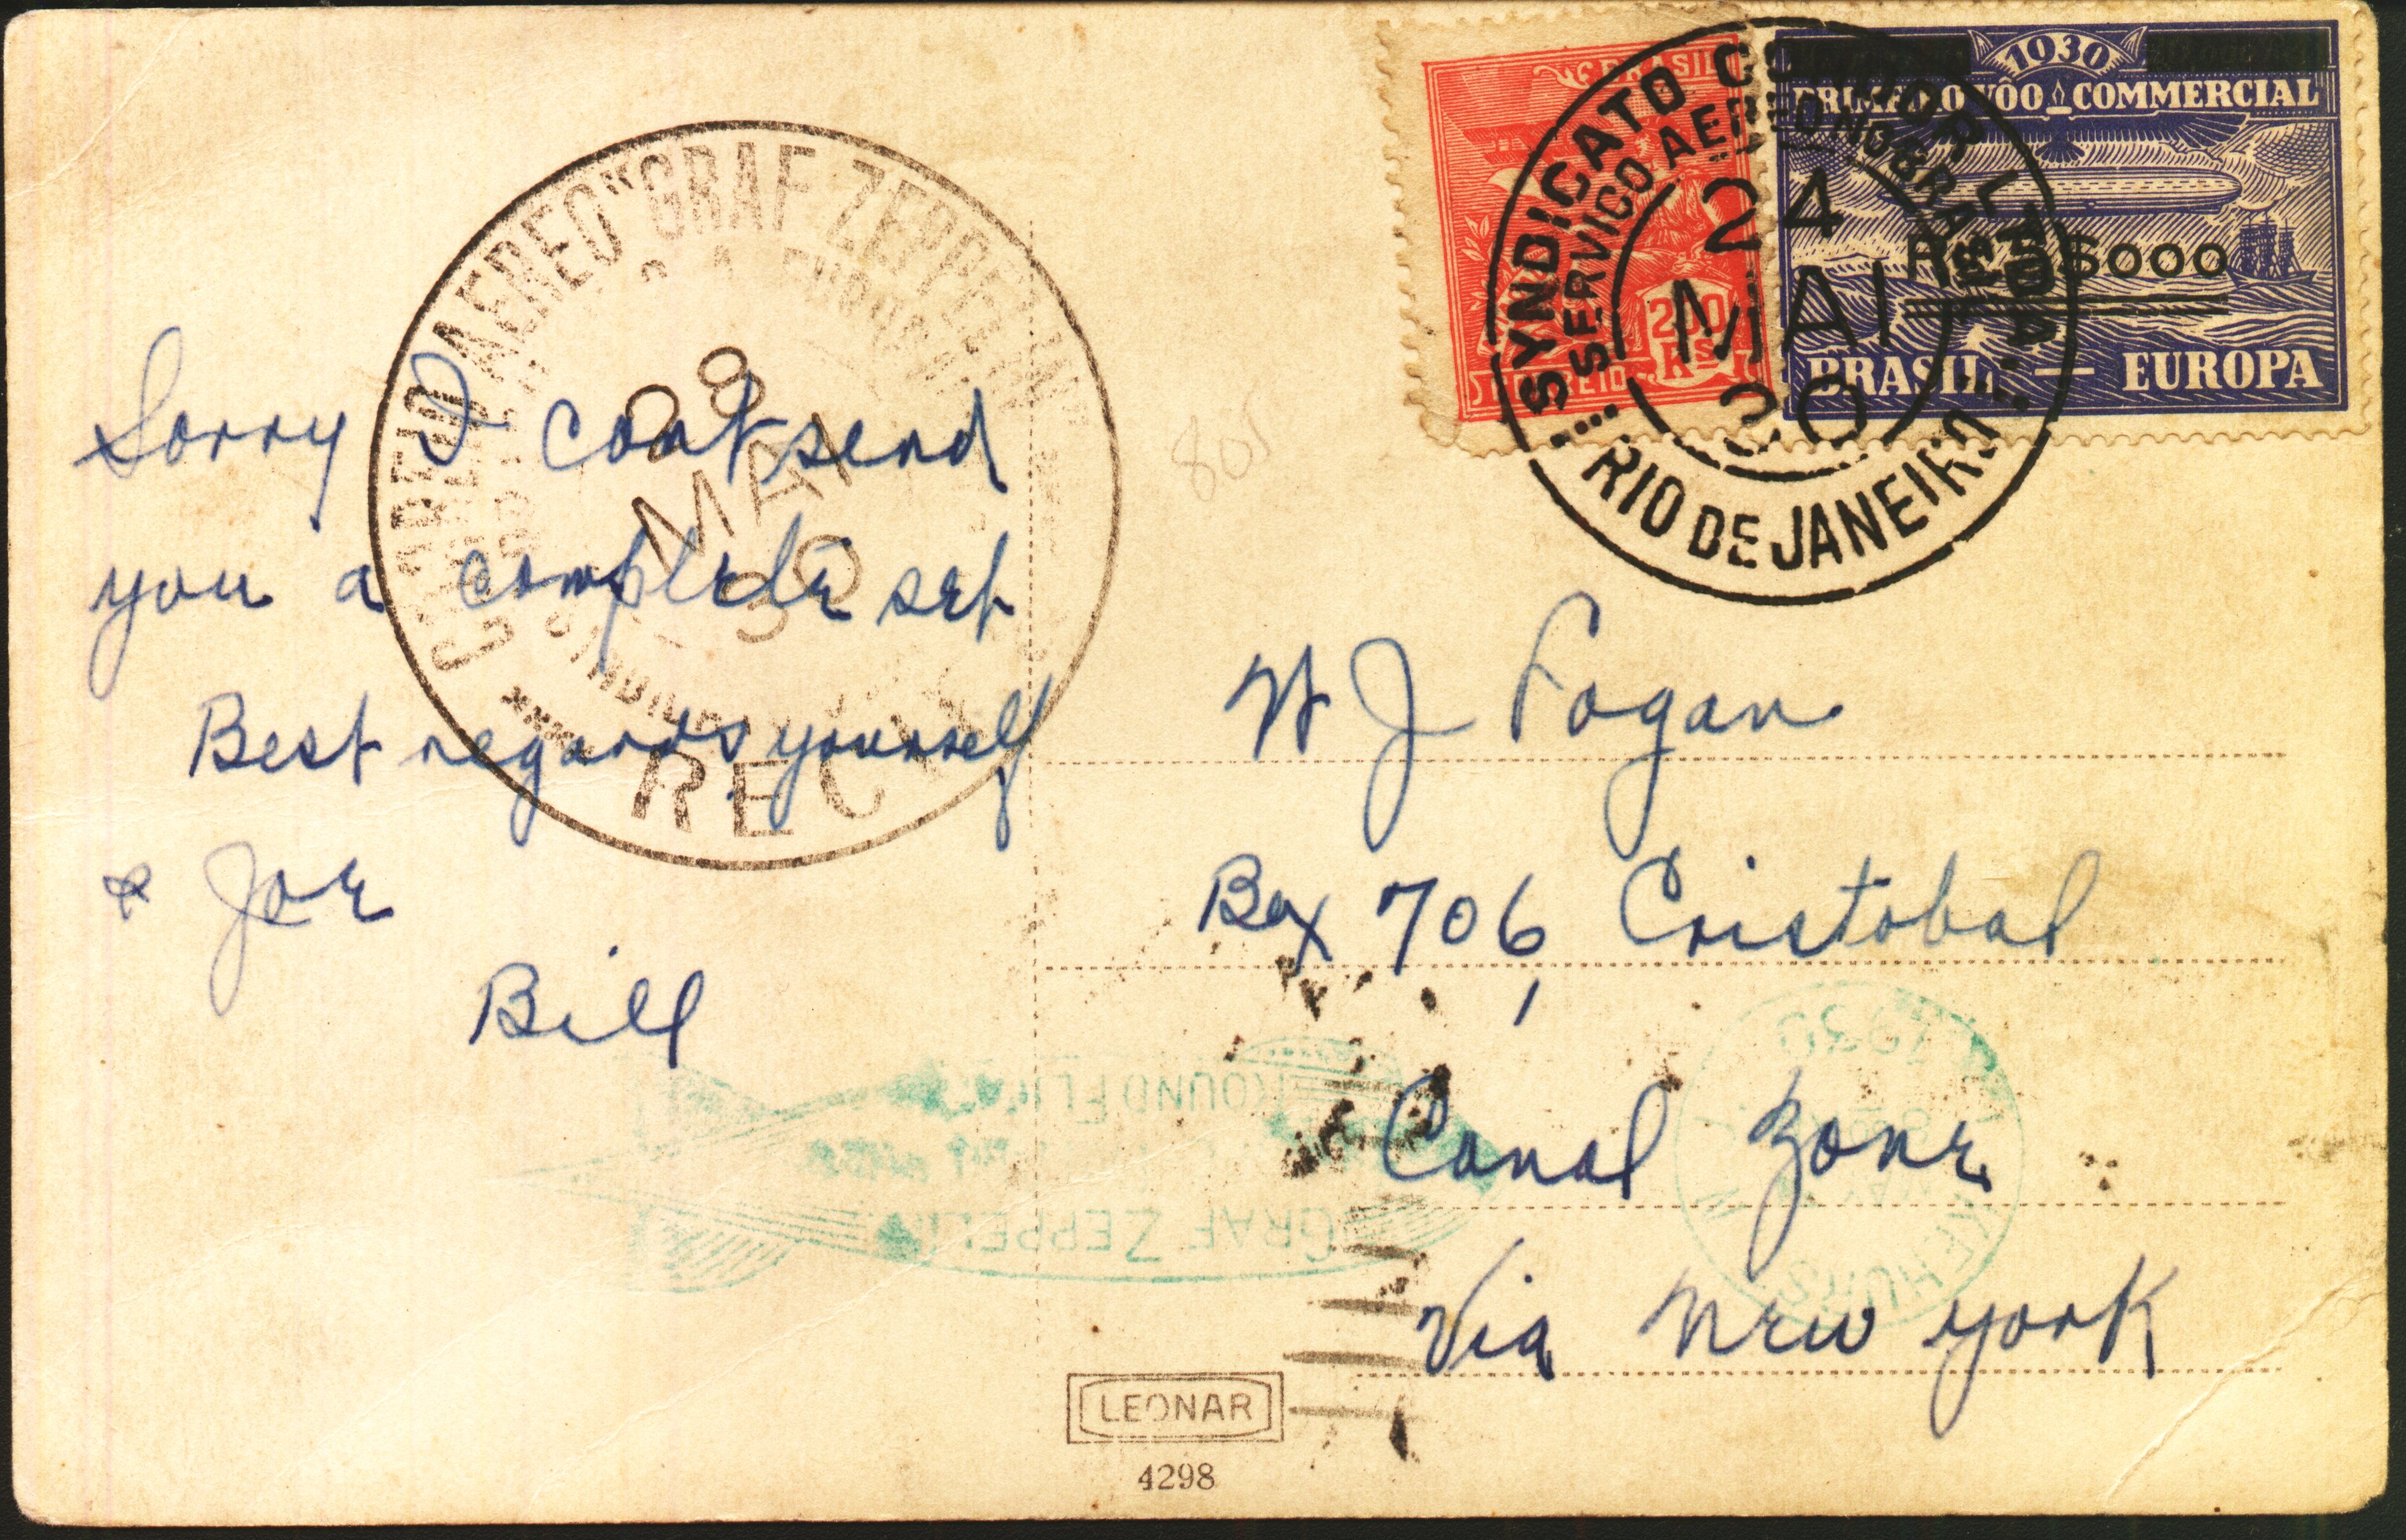 BRASIL
200
Rs
CORREIO
1930
PRIMEIRO VÔO COMMERCIAL
$000
BRASIL — EUROPA
SYNDICATO CONDOR LTDA
SERVIÇO AEREO NO BRASIL
24
MAI
30
RIO DE JANEIRO
AEREO "GRAF ZEPPELIN"
EUROPA
28
MAI
30
REC
805
Sorry I cant send
you a complete set
Best regards yourself
& Joe
Bill
W J Fogan
Box 706, Cristobal
Canal Zone
Via New York
1930
GRAF ZEPPELIN
ROUND FLIGHT
LEONAR
4298